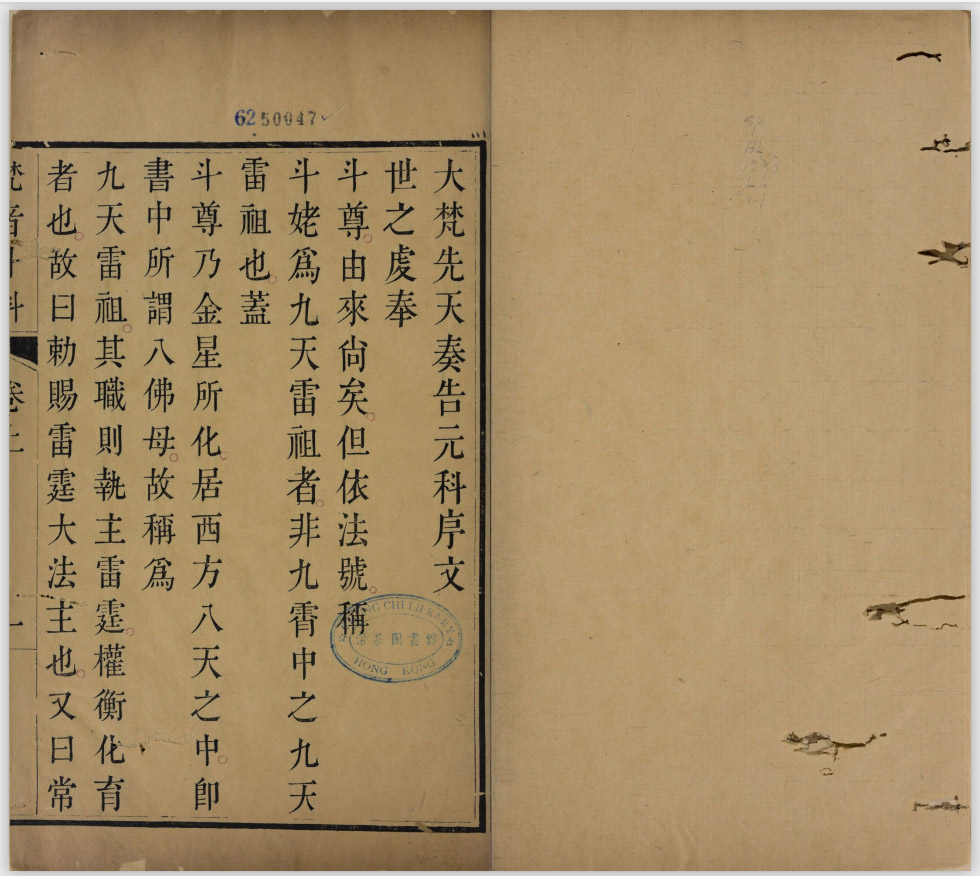 6250047
大梵先天奏告元科序文
世之虔奉
斗尊。由來尙矣。但依法號。稱
斗姥爲九天雷祖者。非九霄中之九天
雷祖也。蓋
斗尊乃金星所化。居西方八天之中。卽
書中所謂八佛母。故稱爲
九天雷祖。其職則執主雷霆。權衡化育
者也。故曰勅賜雷霆大法主也。又曰常
梵音斗科
卷上
一
CHI LIBRARY
圖書館
HONG KONG